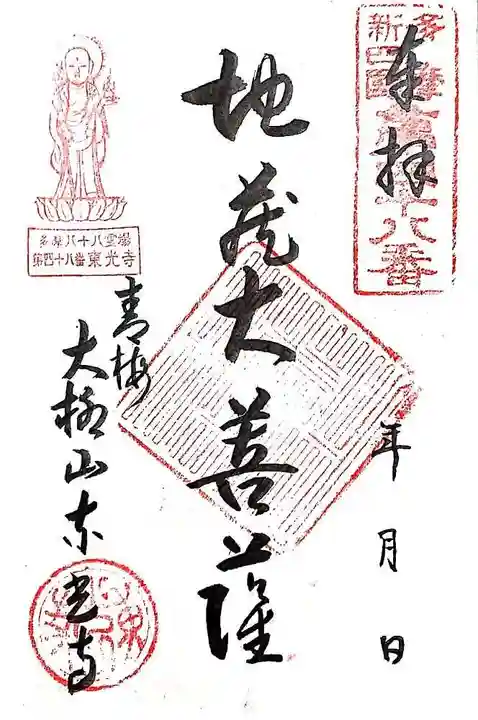 奉拝
年 月 日
地蔵大菩薩
多摩八十八霊場
第四十八番東光寺
青梅
大柳山東光寺